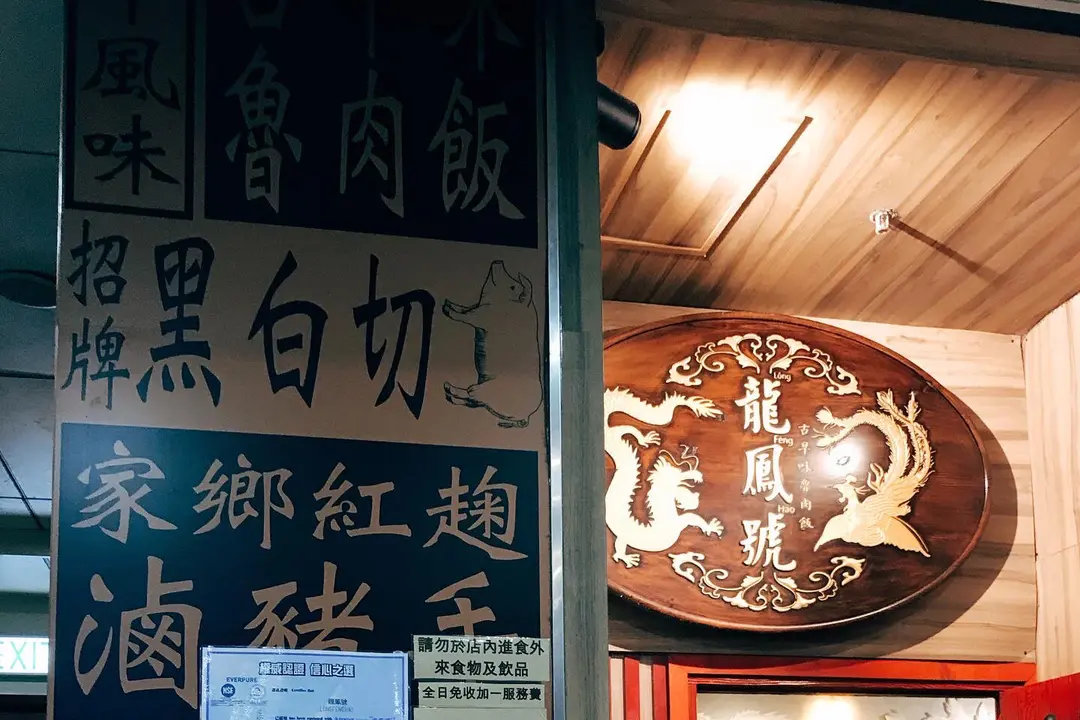 風味
魯肉飯
招牌
黑白切
家鄉紅麴
滷豬手
請勿於店內進食外
來食物及飲品
全日免收加一服務費
權威認證 信心之選
EVERPURE
NSF
龍鳳號
Lóng
Fèng
Hào
古早味魯肉飯
EXIT